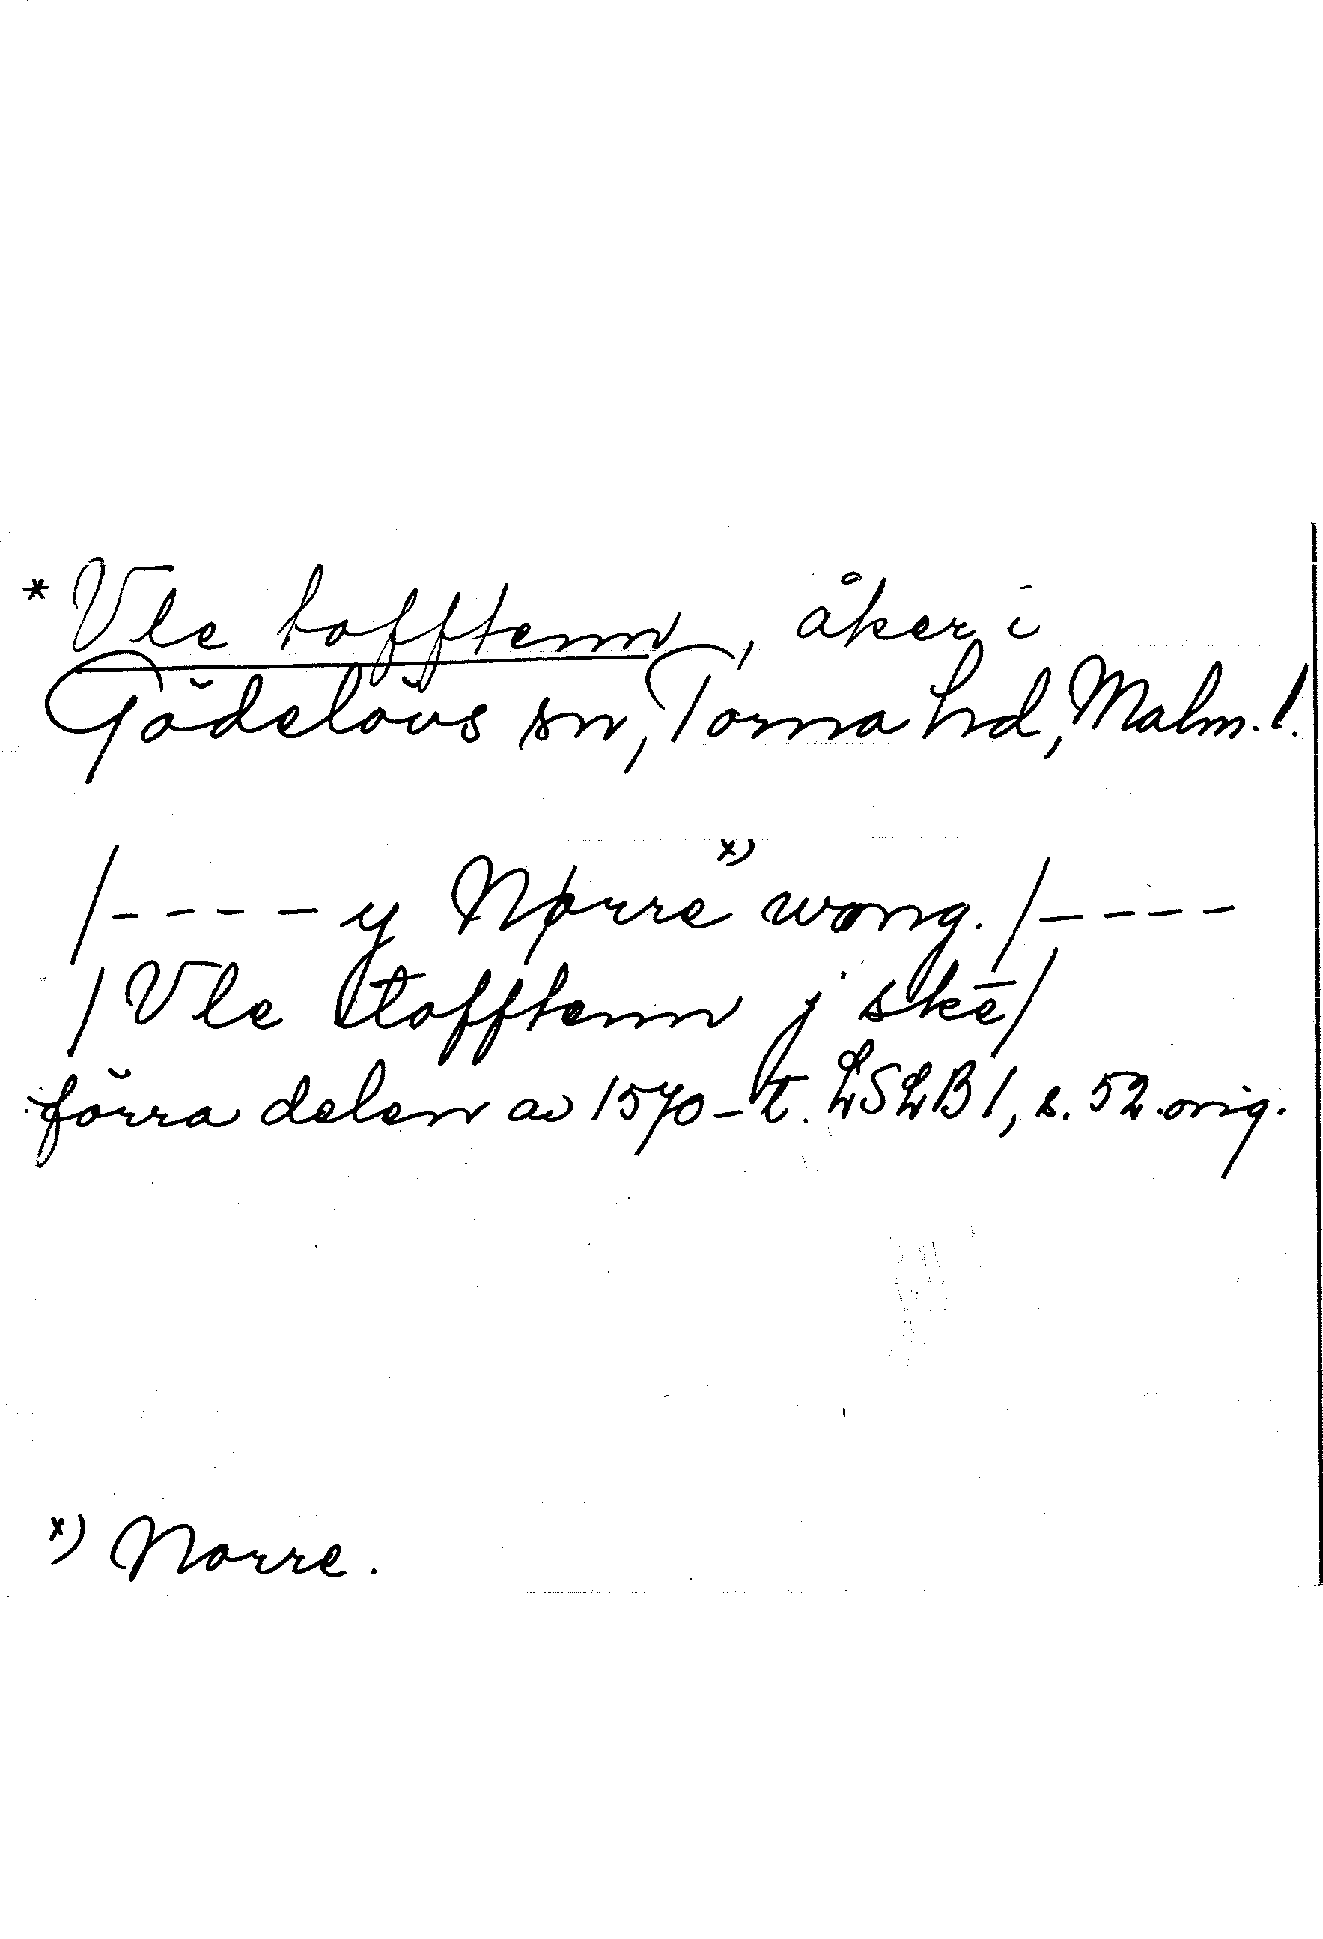 * Vle tofftenn, åker i
Gödelövs sn, Torna hd, Malm. l.
/---- y Nørre x) wong. /----
/Vle tofftenn j skē/
förra delen av 1570-t. LSLB 1, s. 52 orig.
x) Norre.